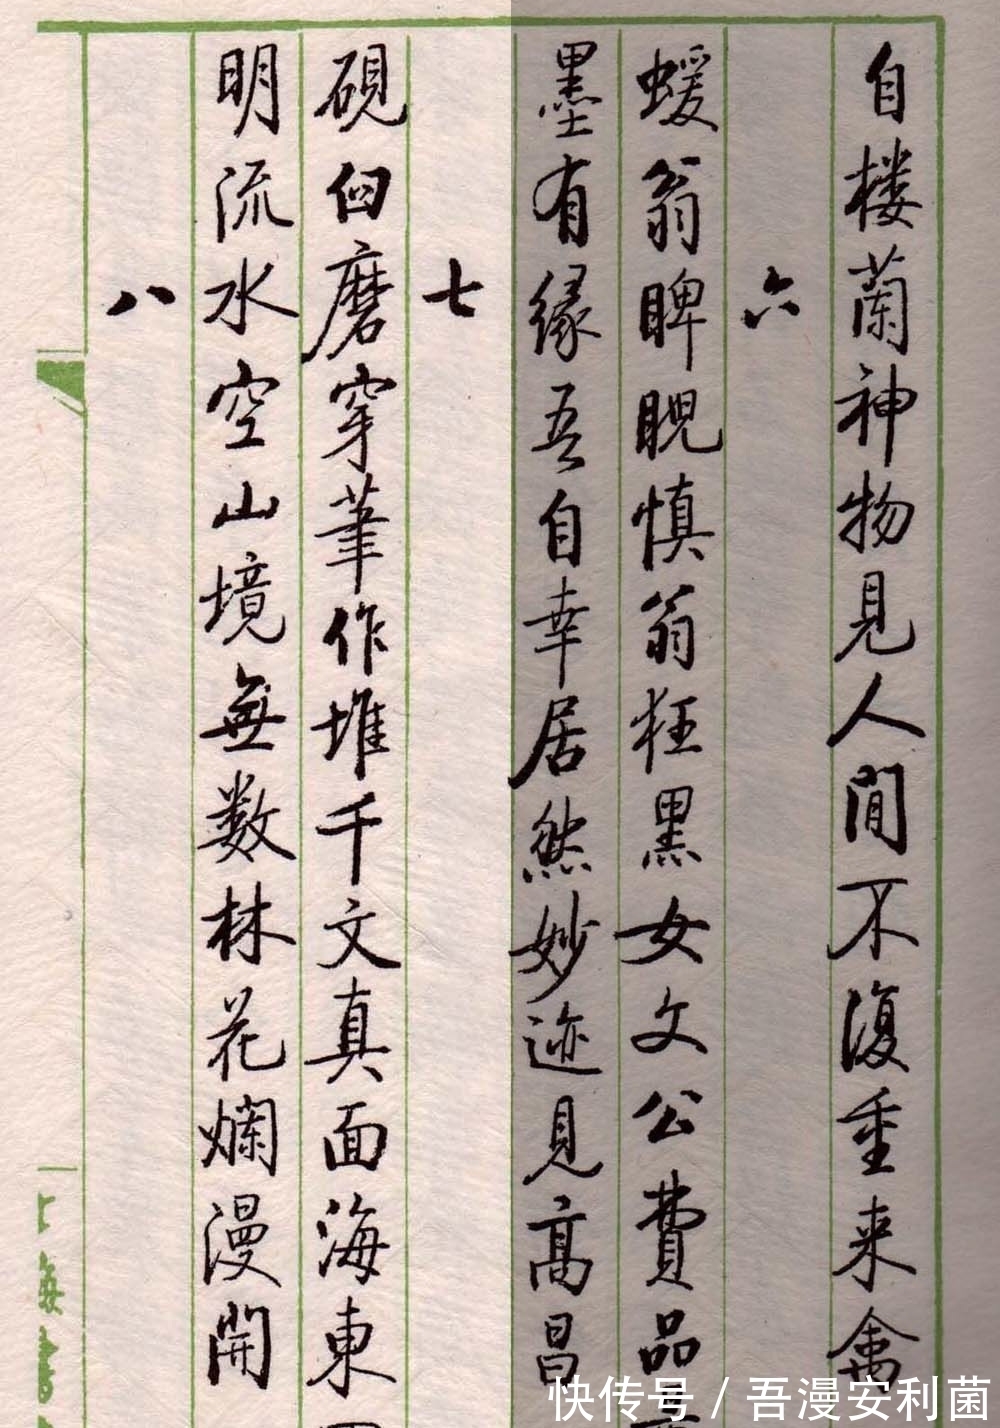 自楼蘭神物見人間不復重来禽
六
蝯翁睥睨慎翁狂黑女文公費品
墨有緣吾自幸居然妙迹見高昌
七
硯臼磨穿筆作堆千文真面海東
明流水空山境無数林花爛漫開
八
上海書
快传号 / 吾漫安利菌